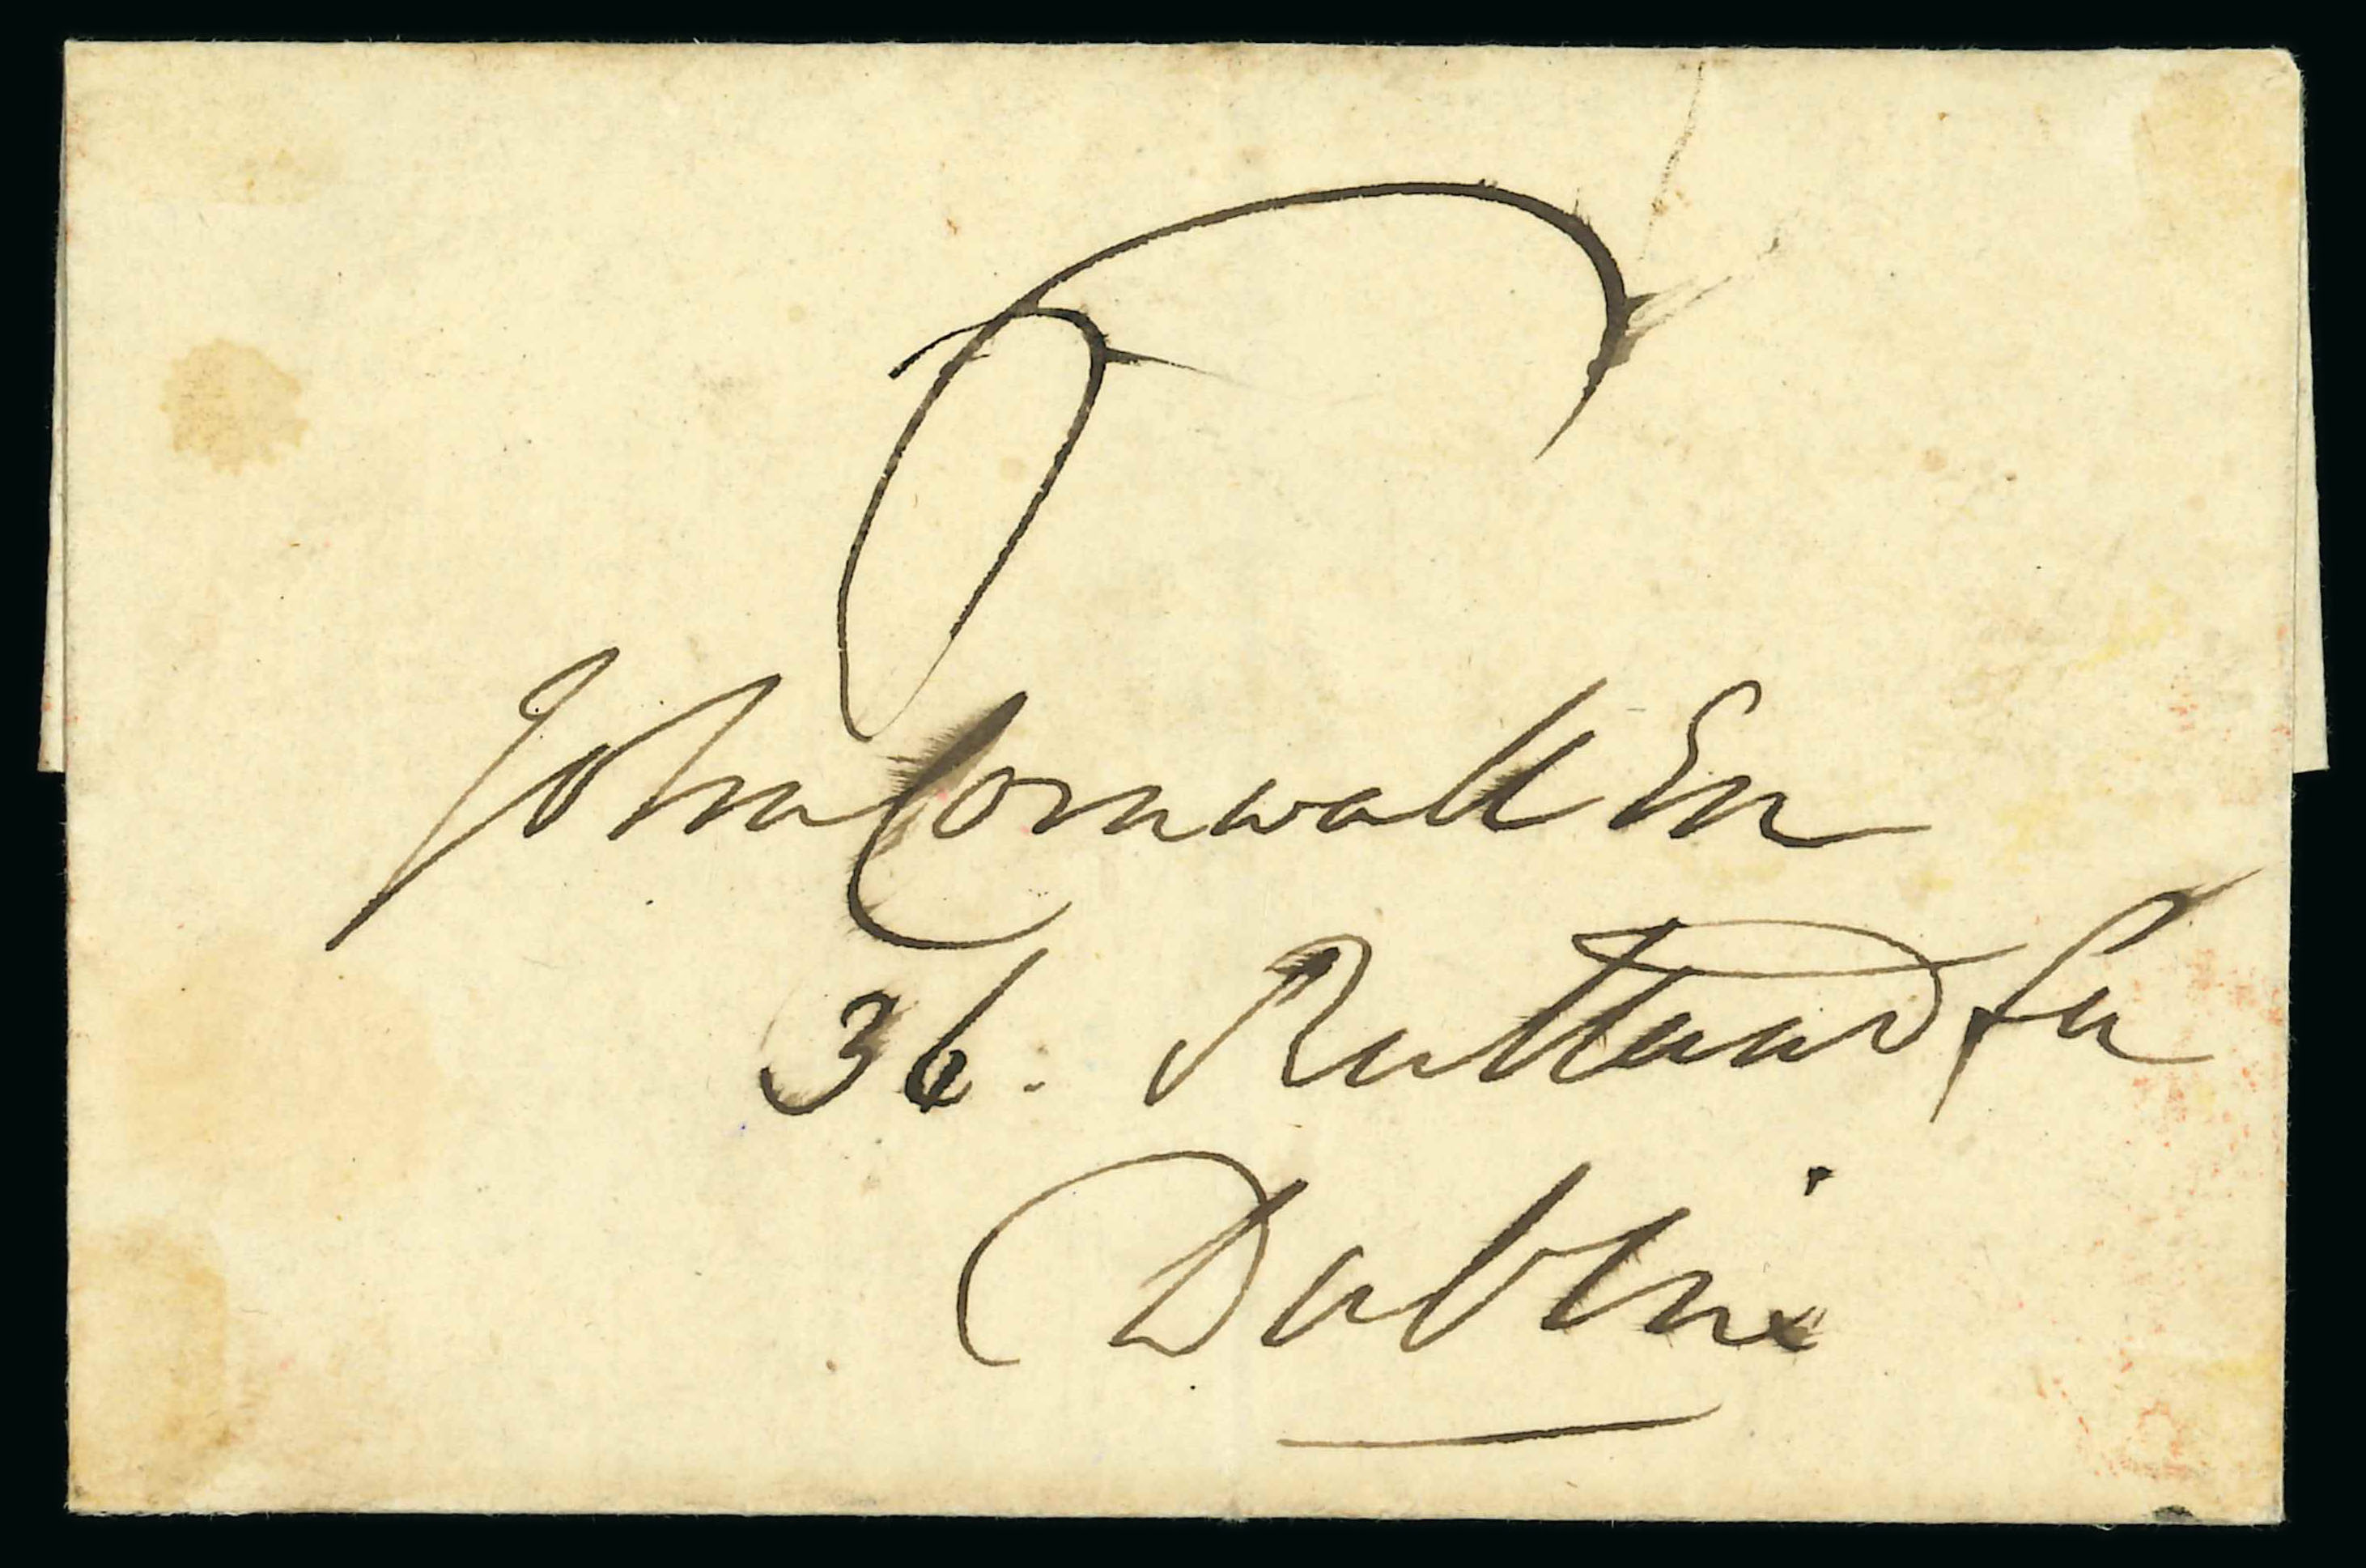 John Cornwall Esq
36. Rutland Sq
Dublin